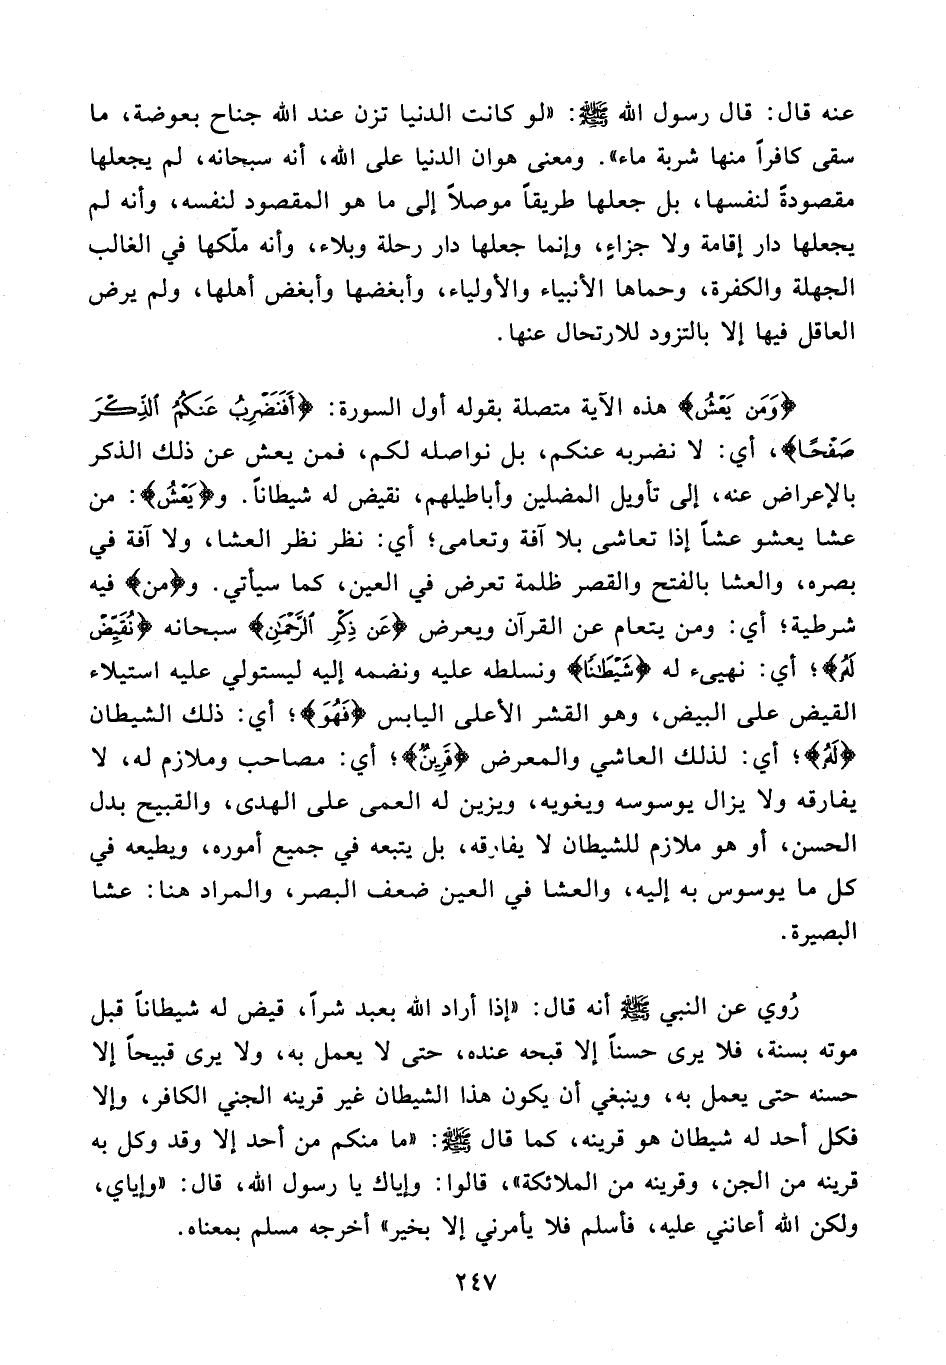 عنه قال: قال رسول الله ﷺ: «لو كانت الدنيا تزن عند الله جناح بعوضة، ما
سقى كافراً منها شربة ماء». ومعنى هوان الدنيا على الله، أنه سبحانه، لم يجعلها
مقصودةً لنفسها، بل جعلها طريقاً موصلاً إلى ما هو المقصود لنفسه، وأنه لم
يجعلها دار إقامة ولا جزاءٍ، وإنما جعلها دار رحلة وبلاء، وأنه ملّكها في الغالب
الجهلة والكفرة، وحماها الأنبياء والأولياء، وأبغضها وأبغض أهلها، ولم يرض
العاقل فيها إلا بالتزود للارتحال عنها.
﴿وَمَن يَعْشُ﴾ هذه الآية متصلة بقوله أول السورة: ﴿أَفَنَضْرِبُ عَنكُمُ ٱلذِّكْرَ
صَفْحًا﴾، أي: لا نضربه عنكم، بل نواصله لكم، فمن يعش عن ذلك الذكر
بالإعراض عنه، إلى تأويل المضلين وأباطيلهم، نقيض له شيطاناً. و﴿يَعْشُ﴾: من
عشا يعشو عشاً إذا تعاشى بلا آفة وتعامى؛ أي: نظر نظر العشا، ولا آفة في
بصره، والعشا بالفتح والقصر ظلمة تعرض في العين، كما سيأتي. و﴿من﴾ فيه
شرطية؛ أي: ومن يتعام عن القرآن ويعرض ﴿عَن ذِكْرِ ٱلرَّحْمَٰنِ﴾ سبحانه ﴿نُقَيِّضْ
لَهُ﴾؛ أي: نهيىء له ﴿شَيْطَٰنًا﴾ ونسلطه عليه ونضمه إليه ليستولي عليه استيلاء
القيض على البيض، وهو القشر الأعلى اليابس ﴿فَهُوَ﴾؛ أي: ذلك الشيطان
﴿لَهُ﴾؛ أي: لذلك العاشي والمعرض ﴿قَرِينٌ﴾؛ أي: مصاحب وملازم له، لا
يفارقه ولا يزال يوسوسه ويغويه، ويزين له العمى على الهدى، والقبيح بدل
الحسن، أو هو ملازم للشيطان لا يفارقه، بل يتبعه في جميع أموره، ويطيعه في
كل ما يوسوس به إليه، والعشا في العين ضعف البصر، والمراد هنا: عشا
البصيرة.
رُوي عن النبي ﷺ أنه قال: «إذا أراد الله بعبد شراً، قيض له شيطاناً قبل
موته بسنة، فلا يرى حسناً إلا قبحه عنده، حتى لا يعمل به، ولا يرى قبيحاً إلا
حسنه حتى يعمل به، وينبغي أن يكون هذا الشيطان غير قرينه الجني الكافر، وإلا
فكل أحد له شيطان هو قرينه، كما قال ﷺ: «ما منكم من أحد إلا وقد وكل به
قرينه من الجن، وقرينه من الملائكة»، قالوا: وإياك يا رسول الله، قال: «وإياي،
ولكن الله أعانني عليه، فأسلم فلا يأمرني إلا بخير» أخرجه مسلم بمعناه.
٢٤٧